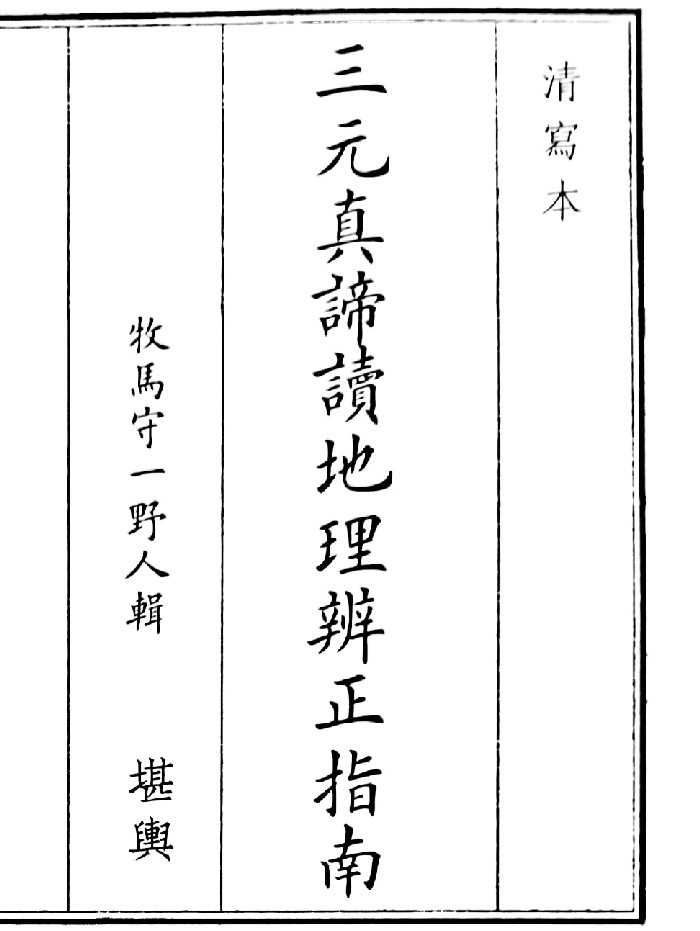 清寫本
三元真諦讀地理辨正指南
牧馬守一野人輯
堪輿